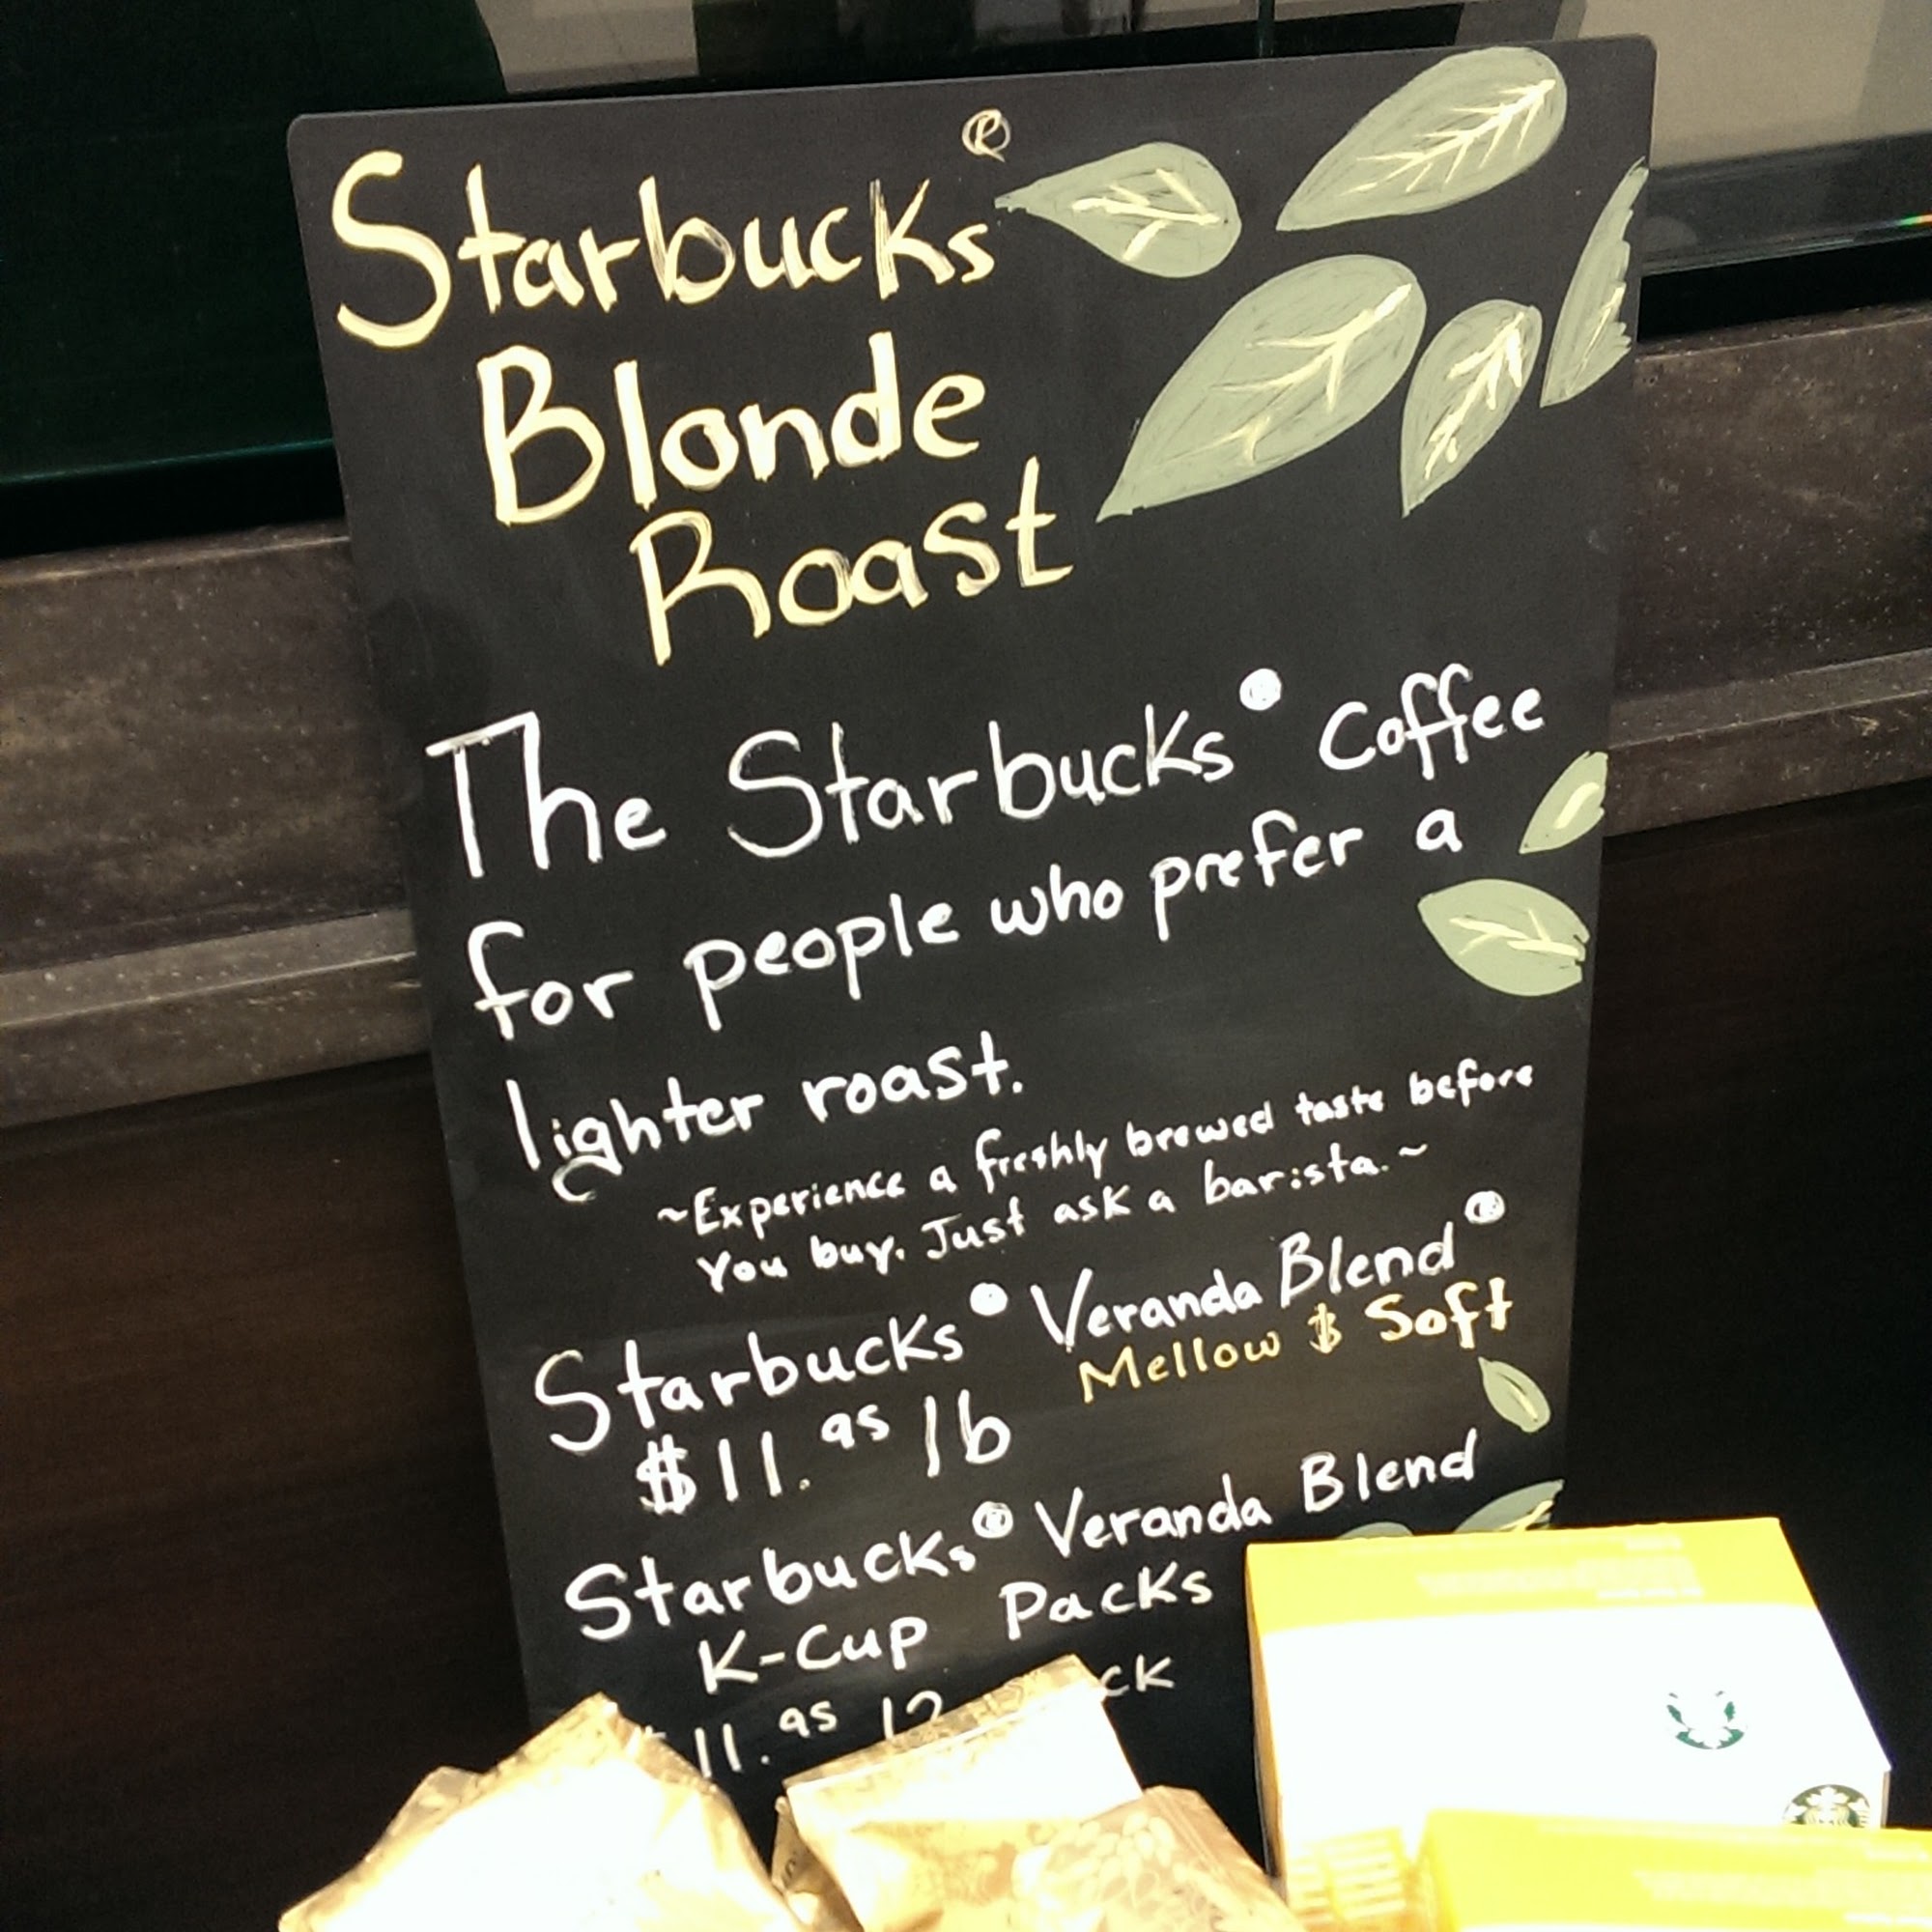 Starbucks®
Blonde
Roast
The Starbucks® Coffee
for people who prefer a
lighter roast.
~Experience a freshly brewed taste before
you buy. Just ask a barista.~
Starbucks® Veranda Blend®
Mellow & Soft
$11.95 lb
Starbucks® Veranda Blend
K-Cup Packs
11.95 12